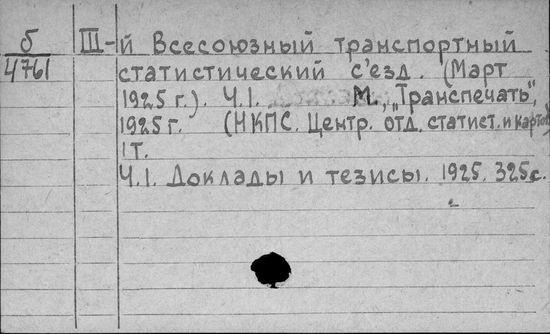 б III-й Всесоюзный транспортный
4761 статистический с'езд. (Март
1925 г.). Ч.1. М., „Транспечать",
1925 г. (НКПС. Центр. отд. статист. и картогр)
1 т.
Ч.1. Доклады и тезисы. 1925. 325 с.